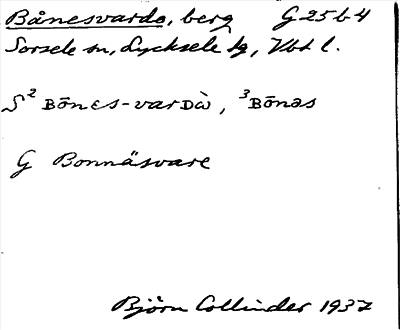 Bånesvardo, berg G 25 b 4
Sorsele sn, Lycksele lg, Vbt l.
S² Bōnɛs-varDȧ̀, ³Bōnəs
G Bonnäsvare
Björn Collinder 1937